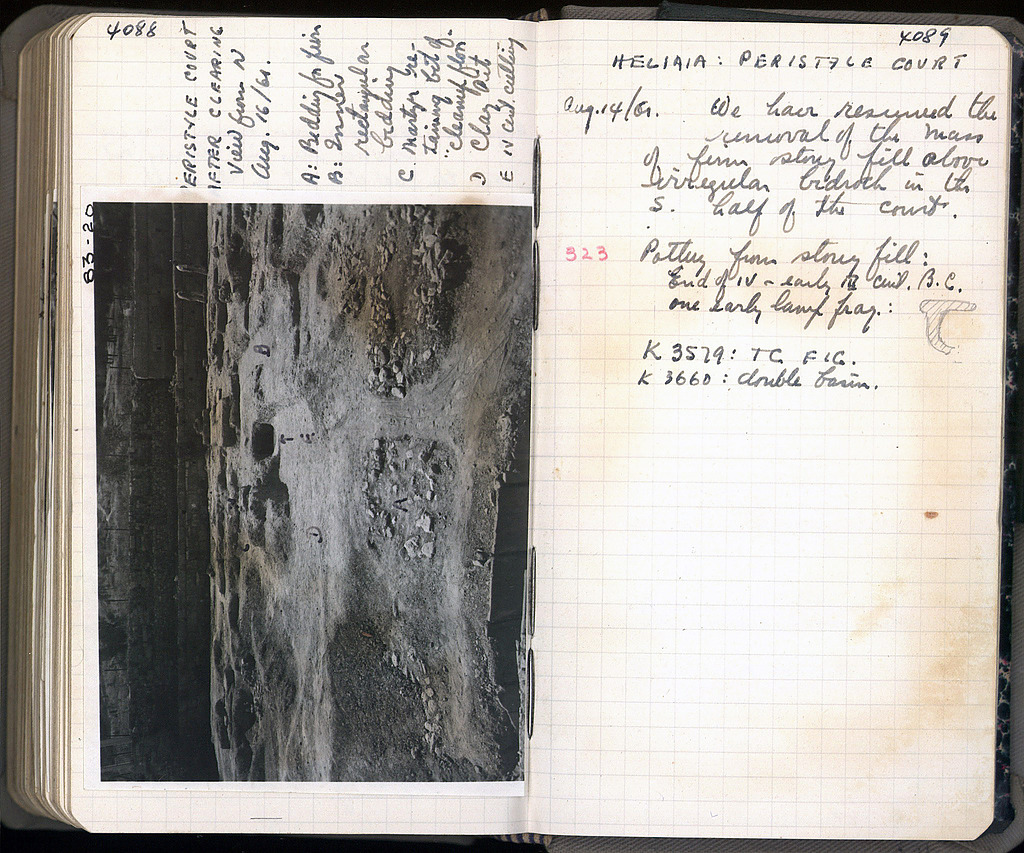 4088
PERISTYLE COURT
AFTER CLEARING
View from N
Aug. 16/61.
A: Bedding for
B: Inner
rectangular
bedding
C. Martyr re-
taining bot of
"cleaned floor
D Clay pit
E IV cent. cutting
83-20
B
E
C
D
A
4089
HELIAIA: PERISTYLE COURT
Aug. 14/61. We have resumed the
removal of the mass
of firm stony fill above
irregular bedrock in the
S. half of the court.
323 Pottery from stony fill:
End of IV - early III cent. B.C.
one early lamp frag.:
K 3579: TC FIG.
K 3660: double basin.